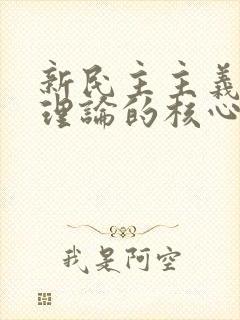 新民主主義
理論的核心
我是阿空